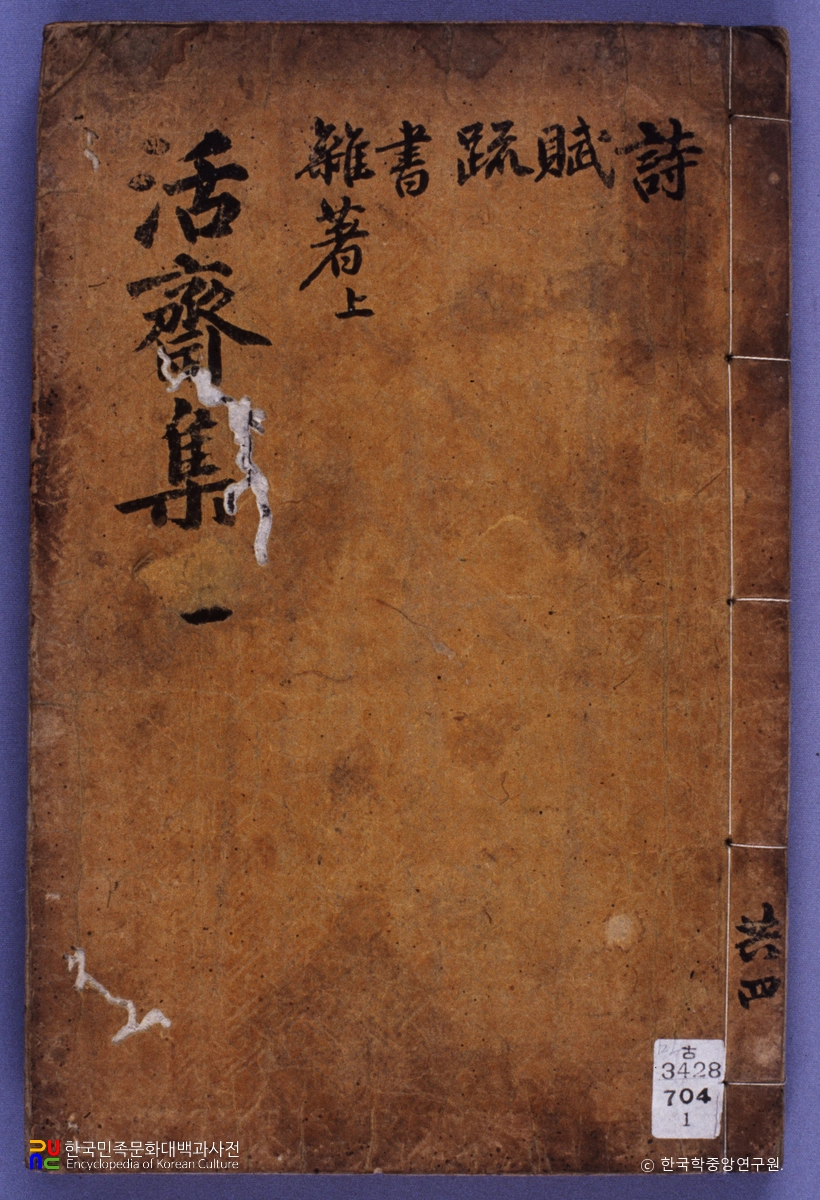 詩
賦
疏
書
雜著上
活齋集 一
共四
古
3428
704
1
한국민족문화대백과사전
Encyclopedia of Korean Culture
© 한국학중앙연구원